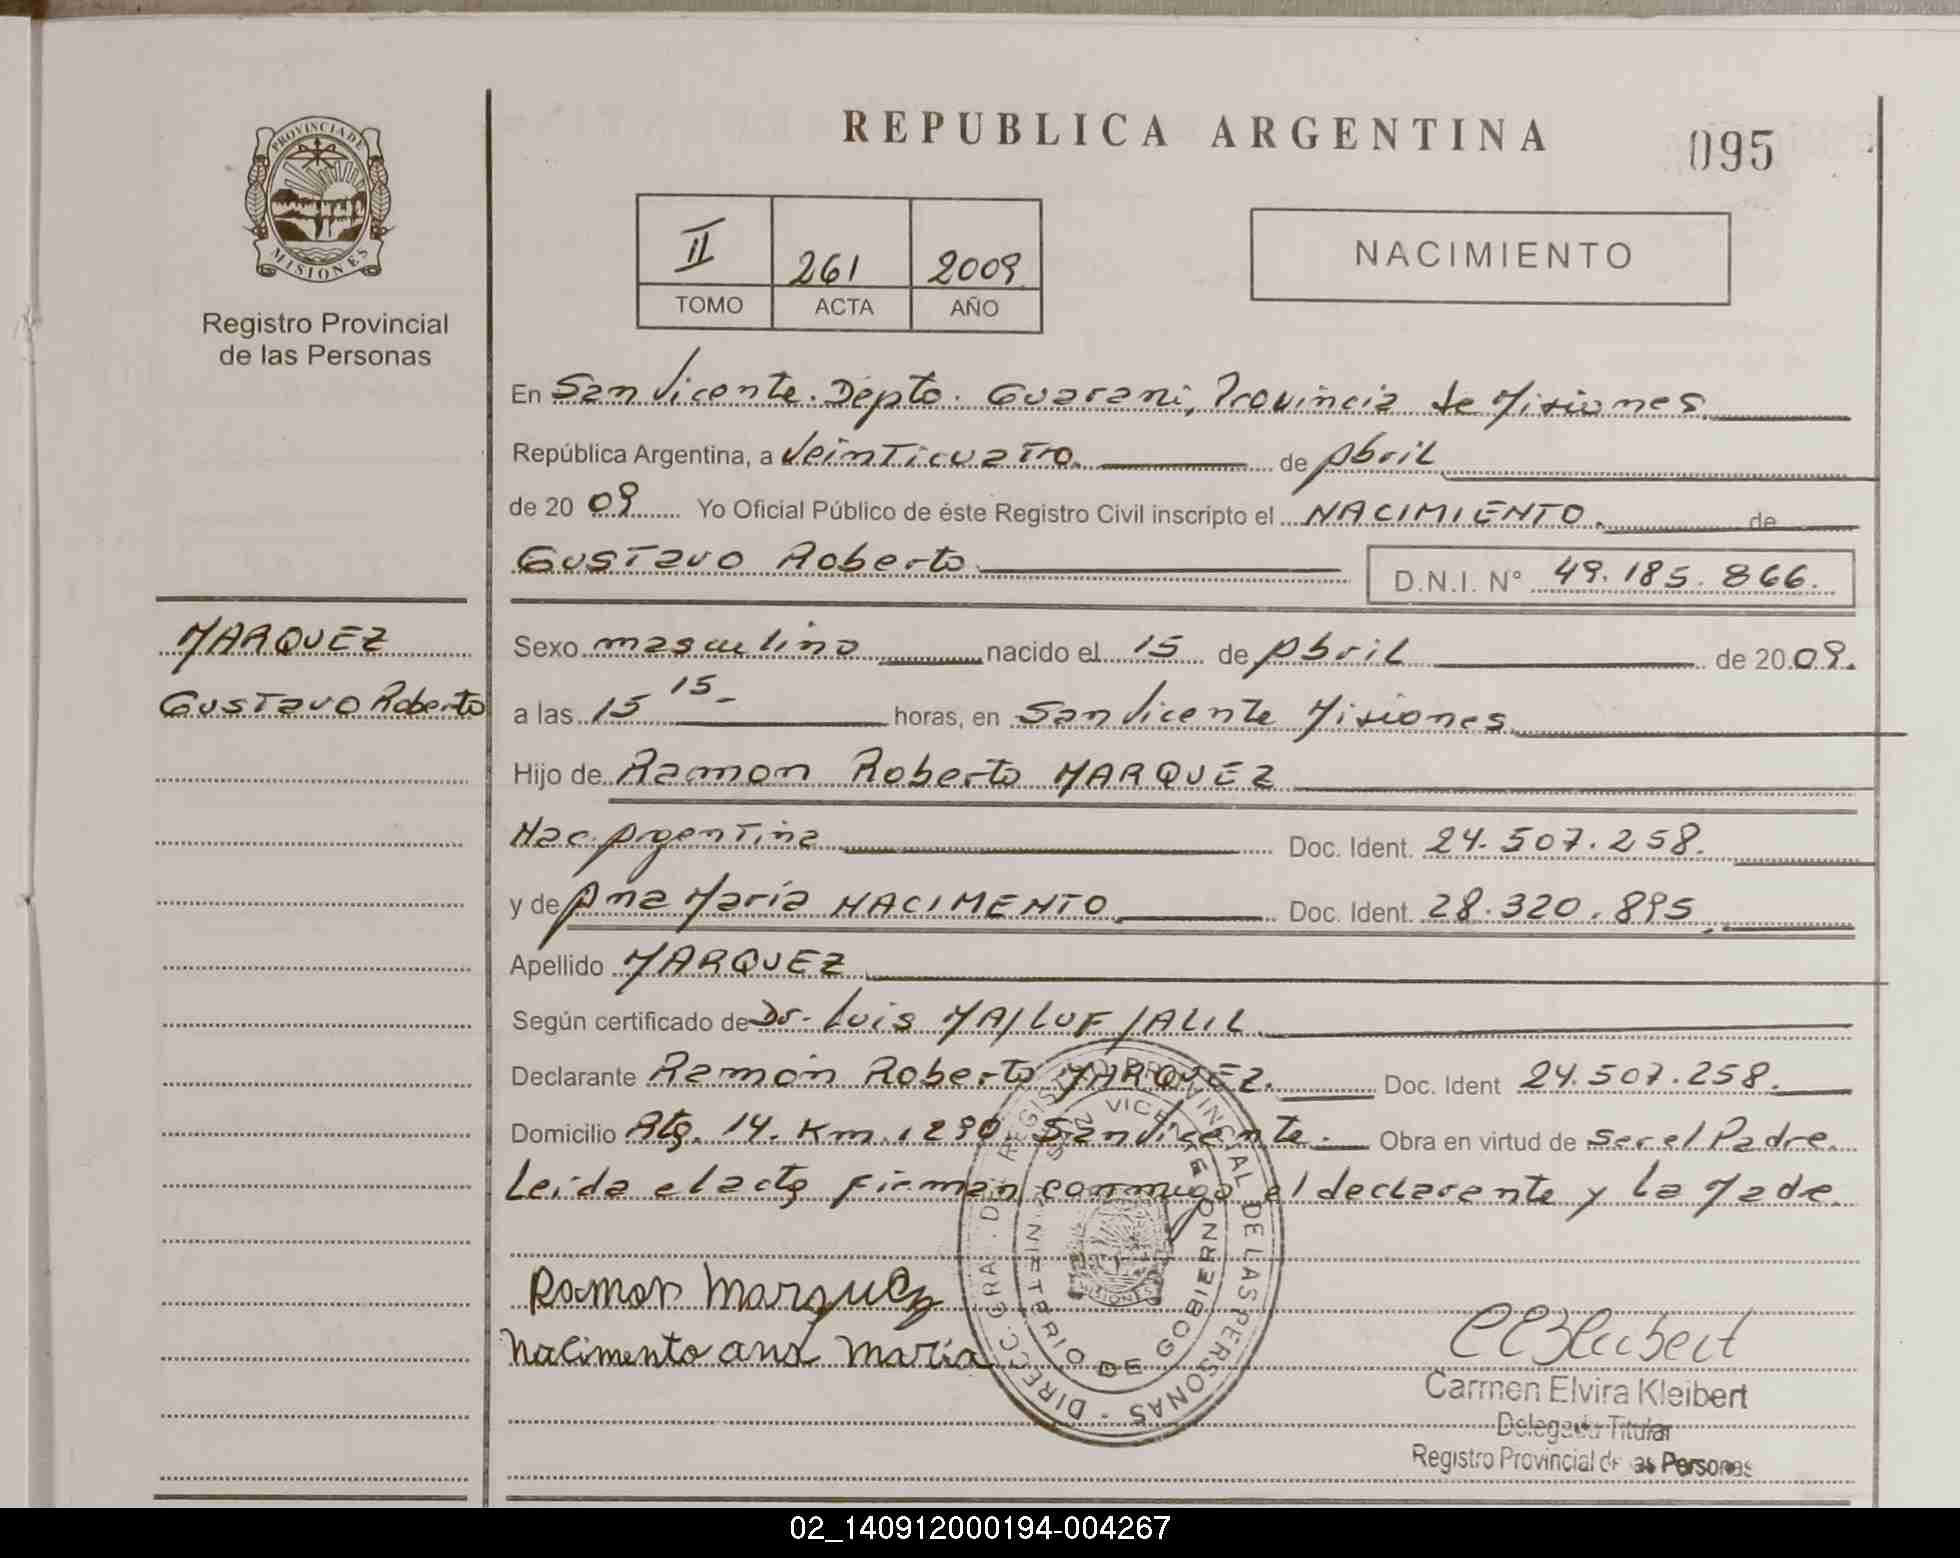 REPUBLICA ARGENTINA
095
PROVINCIA DE
MISIONES
Registro Provincial
de las Personas
II 261 2009
TOMO ACTA AÑO
NACIMIENTO
En San Vicente. Depto. Guarani, Provincia de Misiones
República Argentina, a Veinticuatro de Abril
de 20 09 Yo Oficial Público de éste Registro Civil inscripto el NACIMIENTO de
Gustavo Roberto D.N.I. N° 49.185.866.
MARQUEZ
Gustavo Roberto
Sexo masculino nacido el 15 de Abril de 20 09.
a las 15 15- horas, en San Vicente Misiones
Hijo de Ramon Roberto MARQUEZ
Nac. Argentina Doc. Ident. 24.507.258.
y de Ana María NACIMENTO Doc. Ident. 28.320.895
Apellido MARQUEZ
Según certificado de Dr. Luis MAJLUF JALIL
Declarante Ramón Roberto MARQUEZ. Doc. Ident 24.507.258.
Domicilio Rta. 14. Km. 1290 San Vicente. Obra en virtud de ser el Padre.
Leida el acta firman conmigo el declarante y la Madre.
Ramon Marquez
Nacimento ana Maria
DIRECC. GRAL. DEL REGISTRO PROVINCIAL DE LAS PERSONAS -
SAN VICENTE
MINISTERIO DE GOBIERNO
MISIONES
Carmen Elvira Kleibert
Delegada Titular
Registro Provincial de las Personas
02_140912000194-004267